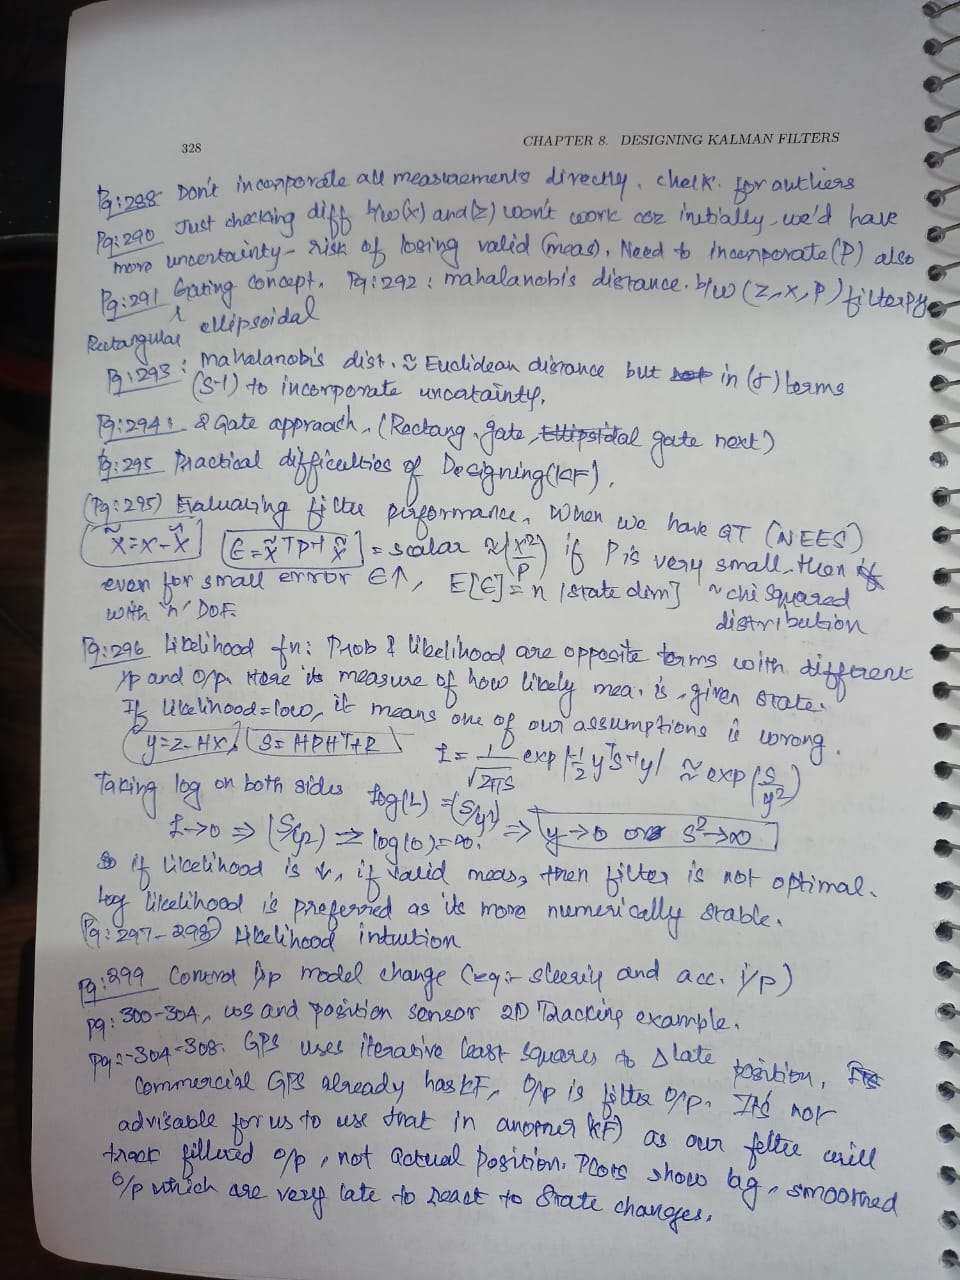 328 CHAPTER 8. DESIGNING KALMAN FILTERS
Pg:288 Don't incorporate all measurements directly, check for outliers
Pg:290 Just checking diff b/w (x) and (z) won't work coz initially, we'd have
more uncertainty - risk of losing valid (meas). Need to incorporate (P) also
Pg:291 Gating concept. Pg:292: mahalanobis distance. b/w (z,x,P) filterpy
Rectangular ellipsoidal
Pg:293: Mahalanobis dist. ≈ Euclidean distance but in (σ) terms
(S-1) to incorporate uncertainty.
Pg:294: 2 Gate approach, (Rectang. gate, Ellipsoidal gate next)
Pg:295 Practical difficulties of Designing (KF).
(Pg:295) Evaluating filter performance, When we have GT (NEES)
x̃=x-x̂ ϵ=x̃TP-1x̃ = scalar ≈ (x²/P) if P is very small, then
even for small error ϵ↑, E[ϵ]=n [state dim] ~chi squared
with 'n' DOF. distribution
Pg:296 Likelihood fn: Prob & likelihood are opposite terms with different
i/p and o/p. Here its measure of how likely mea. is, given state.
If likelihood=low, it means one of our assumptions is wrong.
y=z-Hx, S=HPHT+R L=1/√2πS exp[-1/2 yTS-1y] ≈ exp(S/y²)
Taking log on both sides log(L) =(S/y²)
L→0 ⇒ (S/y²) ⇒ log(0)=-∞. ⇒ y→0 or S²→∞
if likelihood is ↓, if valid meas, then filter is not optimal.
Log likelihood is preferred as its more numerically stable.
(Pg:297-298) Likelihood intuition
Pg:299 Control i/p model change (eg:- steering and acc. i/p)
pg: 300-304, ws and position sensor 2D Tracking example.
pg:-304-308. GPS uses iterative least squares to Δlate position,
Commercial GPS already has KF, O/p is filter o/p. Its not
advisable for us to use that in another KF) as our filter will
track filtered o/p, not actual position. Plots show lag, smoothed
o/p which are very late to react to state changes.